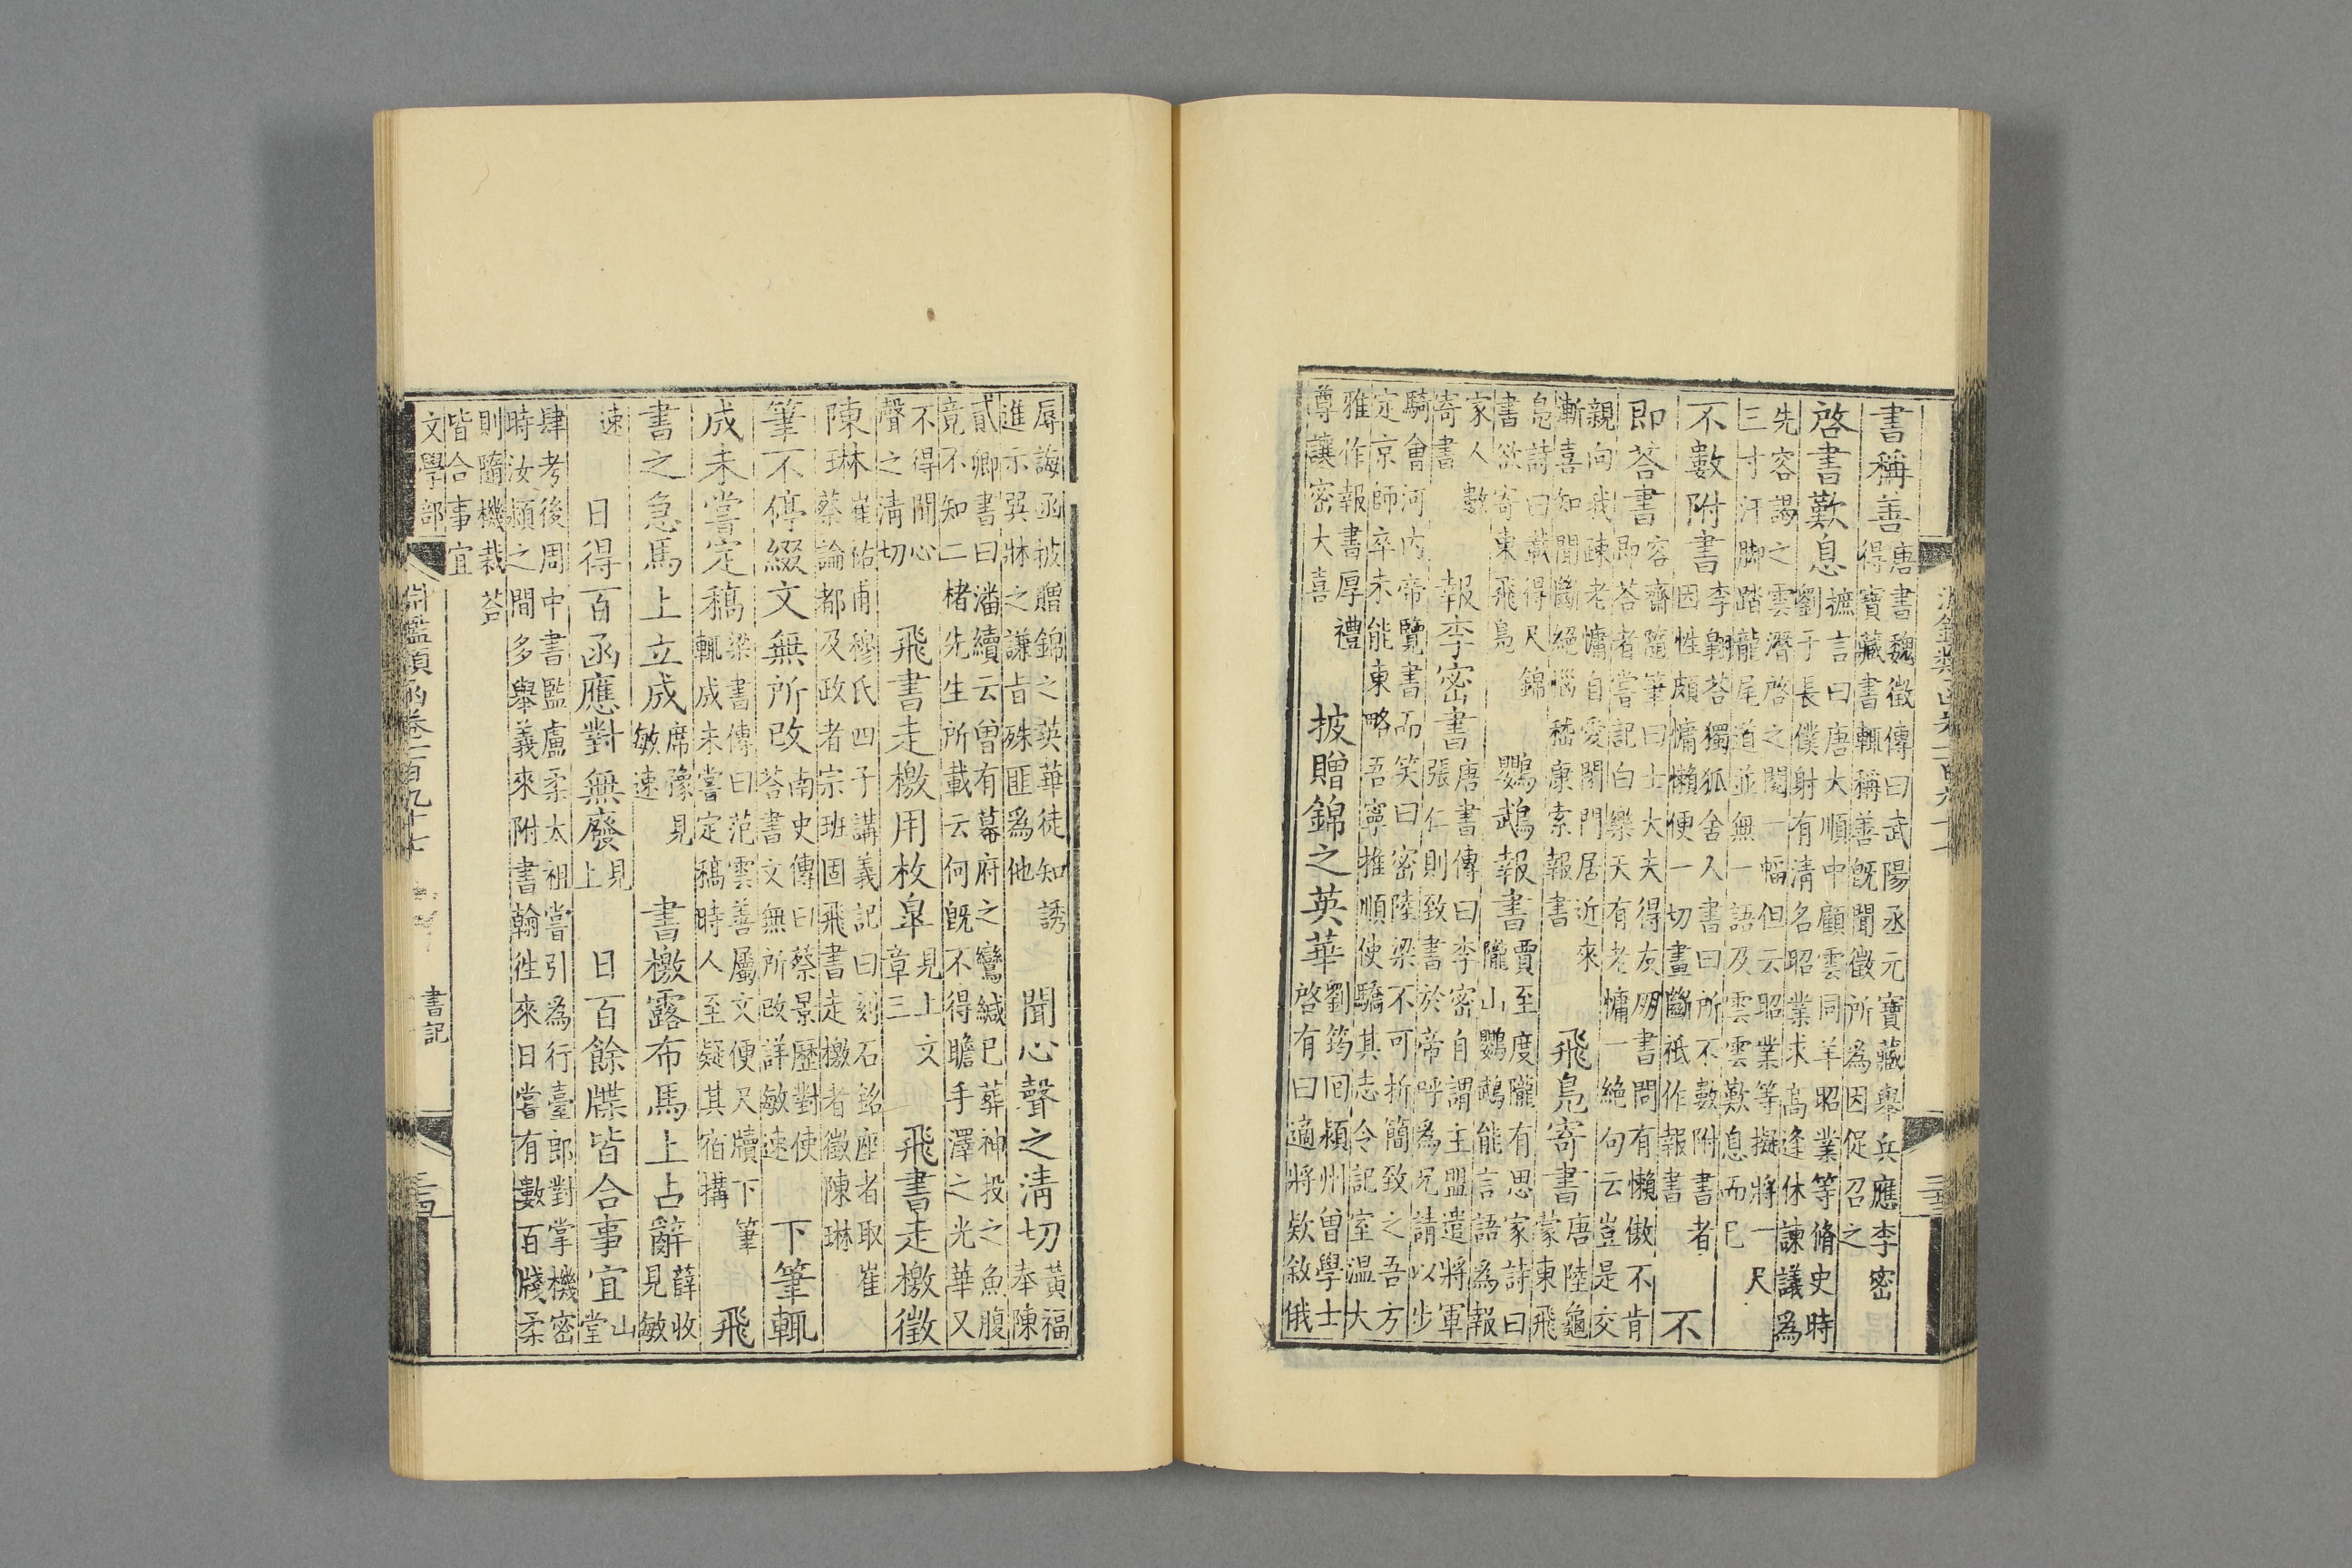 書稱善
唐書魏徵傳曰武陽丞元寶藏舉兵應李密
得寶藏書輒稱善既聞徵所為因促召之
啓書歎息
摭言曰唐大順中顧雲同羊昭業等脩史時
劉子長僕射有清名昭業求高逢休諫議為
先容謁之雲潛啓之閱一幅但云昭業等擬將一尺
三寸汗脚踏龍尾道並無一語及雲雲歎息而已
不數附書
李翺荅獨狐舍人書曰所不數附書者
因性頗慵懶便一切畫斷祇作報書
不
即荅書
容齋隨筆曰士大夫得友朋書問有懶傲不肯
即荅者嘗記白樂天有老慵一絶句云豈是交
親向我疎老慵自愛閉門居近來
漸喜知聞斷絶惱嵇康索報書
飛鳧寄書
唐陸龜
蒙東飛
鳧詩曰裁得尺錦
書欲寄東飛鳧
鸚鵡報書
賈至度隴有思家詩曰
隴山鸚鵡能言語為報
家人數
寄書
報李密書
唐書傳曰李密自謂主盟遣將軍
張仁則致書於帝呼為兄請以步
騎會河内帝覽書而笑曰密陸梁不可折簡致之吾方
定京師卒未能東略吾寧推順使驕其志令記室温大
雅作報書厚禮
尊讓密大喜
披贈錦之英華
劉筠囘潁州曾學士
啓有曰適將欵敘俄
辱誨函披贈錦之英華徒知誘
進示巽牀之謙旨殊匪為他
聞心聲之清切
黃福
奉陳
貳卿書曰潘續云曾有幕府之鸞緘已葬神投之魚腹
竟不知二楮先生所載云何既不得瞻手澤之光華又
不得聞心
聲之清切
飛書走檄用枚臯
見上文
章三
飛書走檄徵
陳琳
崔祐甫穆氏四子講義記曰刻石銘座者取崔
蔡論都及政者宗班固飛書走檄者徵陳琳
下筆輒
筆不停綴文無所改
南史傳曰蔡景歷對使
荅書文無所改詳敏速
成未嘗定稿
梁書傳曰范雲善屬文便尺牘下筆
輒成未嘗定稿時人至疑其宿搆
飛
書之急馬上立成
席豫見
敏速
書檄露布馬上占辭
薛收
見敏
速
日得百函應對無廢
見
上
日百餘牒皆合事宜
山
堂
肆考後周中書監盧柔太祖嘗引為行臺郎對掌機密
時汝潁之間多舉義來附書翰徃來日嘗有數百牋柔
則隨機裁荅
皆合事宜
文學部
淵鑑類函卷一百九十七
書記